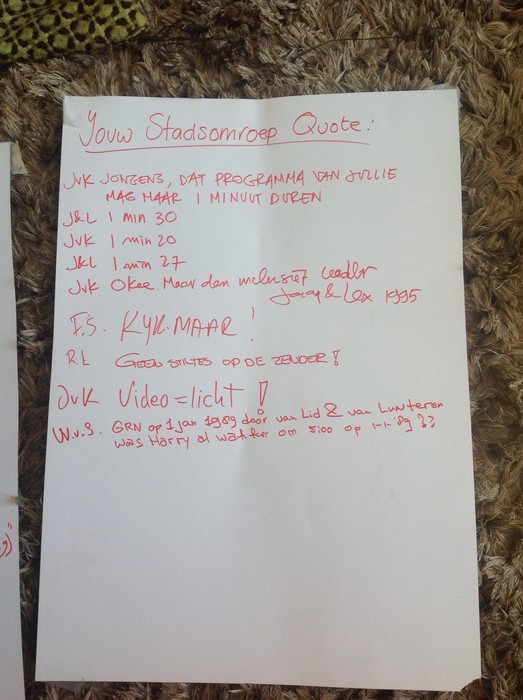 Jouw Stadsomroep Quote:
JVK JONGENS, DAT PROGRAMMA VAN JULLIE
MAG MAAR 1 MINUUT DUREN
J&L 1 min 30
JVK 1 min 20
J&L 1 min 27
JVK Okee. Maar dan inclusief leader
& Lex 1995
F.S. KYK MAAR!
R.L GEEN STILTES OP DE ZENDER!
JVK Video = licht!
W.v.S. GRN op 1 jan 1989 door van Lid & van Lunteren
was Harry al wakker om 5:00 op 1-1-'89 ??
g)"